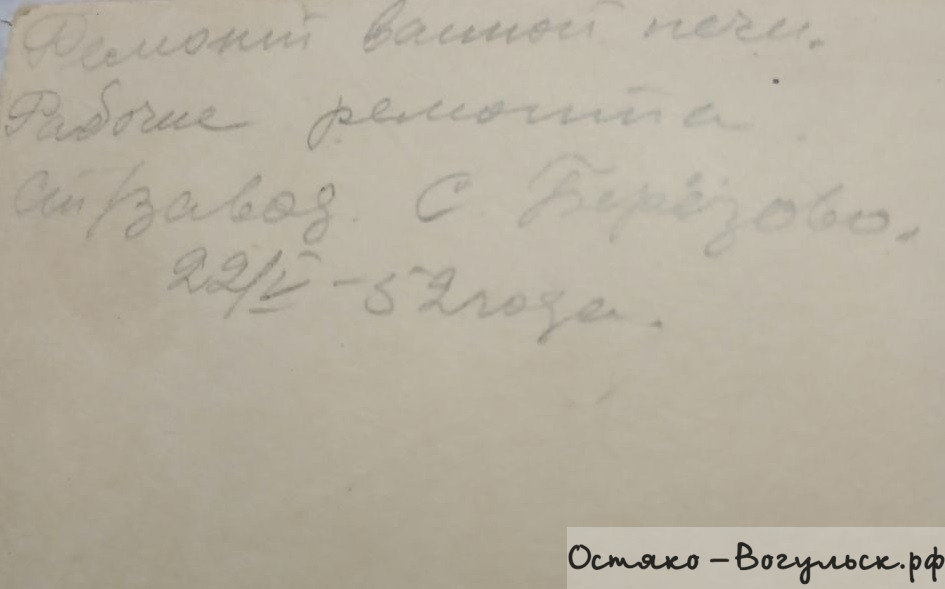 Ремонт ванной печи.
Рабочие ремонта
Ст/завод. С Берёзово.
22/V - 52 года.
Остяко-Вогульск.рф